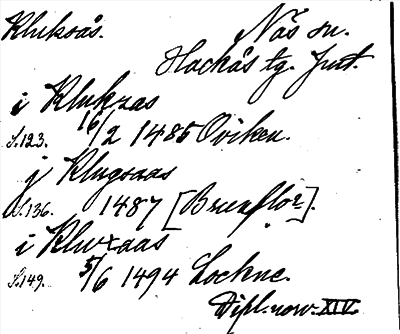 Kluksås. Näs sn.
Hackås tg. Jmt.
i Klukzas
S.123. 16/2 1485 Oviken.
j Klugsaas
S.136. 1487 [Brunflo?].
i Kluxaas
S.149. 5/6 1494 Lockne.
Dipl. norv. XIV.